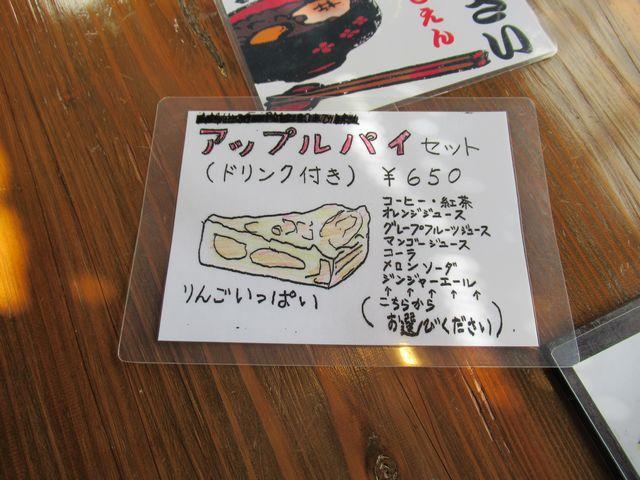 さい
じぇん
アップルパイ セット
(ドリンク付き) ￥650
コーヒー・紅茶
オレンジジュース
グレープフルーツジュース
マンゴージュース
コーラ
メロンソーダ
ジンジャーエール
↑ ↑ ↑ ↑ ↑
(こちらから
お選びください)
りんごいっぱい